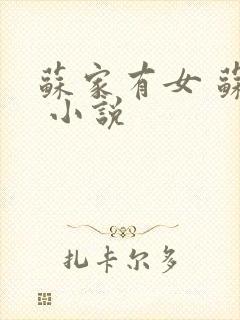 蘇家有女 蘇
小說
扎卡尔多